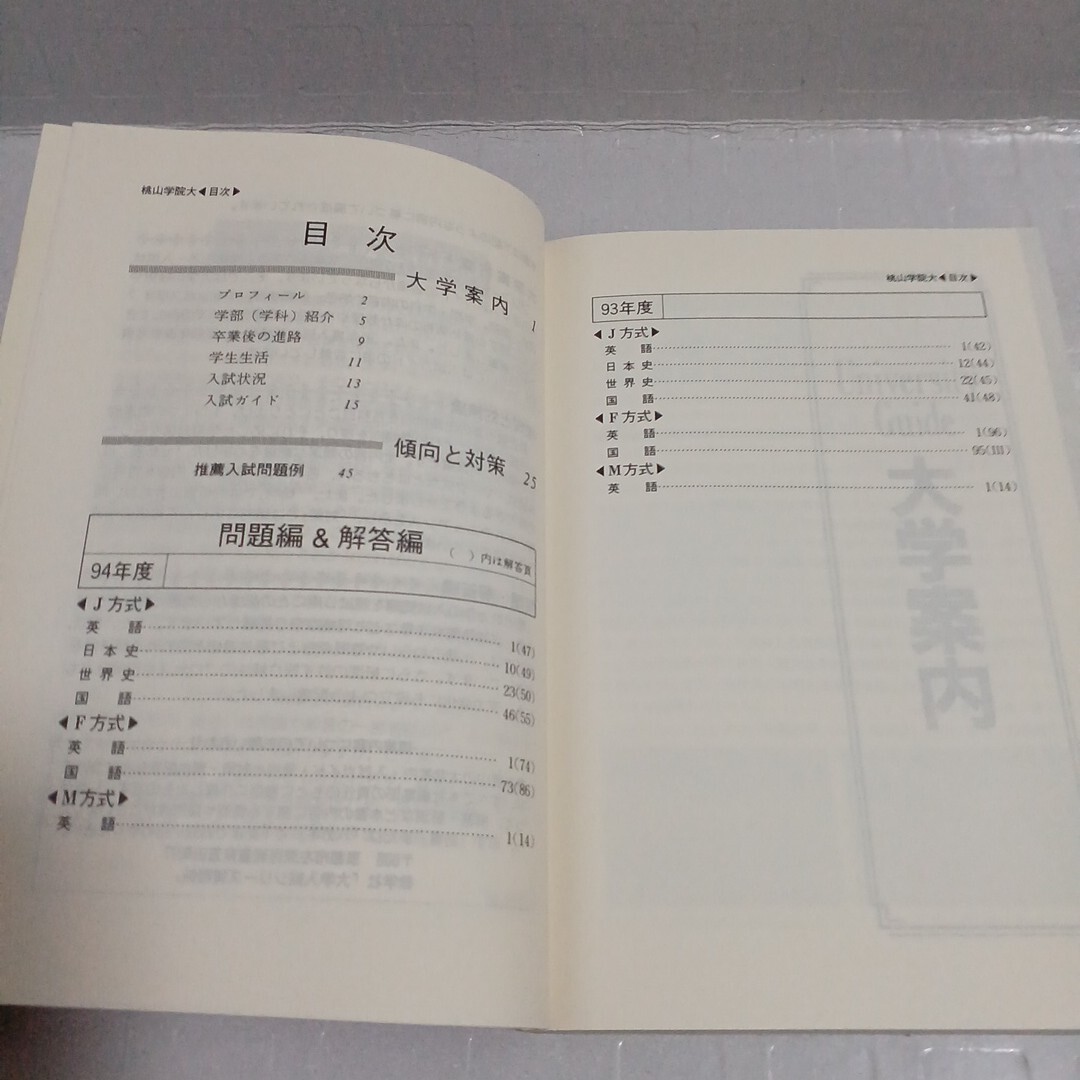 桃山学院大◀目次▶
目 次
大学案内 1
プロフィール 2
学部（学科）紹介 5
卒業後の進路 9
学生生活 11
入試状況 13
入試ガイド 15
傾向と対策 25
推薦入試問題例 45
問題編 & 解答編 （ ）内は解答頁
94年度
◀J方式▶
英 語 1(47)
日本史 10(49)
世界史 23(50)
国 語 46(55)
◀F方式▶
英 語 1(74)
国 語 73(86)
◀M方式▶
英 語 1(14)
桃山学院大◀目次▶
93年度
◀J方式▶
英 語 1(42)
日本史 12(44)
世界史 22(45)
国 語 41(48)
◀F方式▶
英 語 1(96)
国 語 95(111)
◀M方式▶
英 語 1(14)
University Guide
大学案内